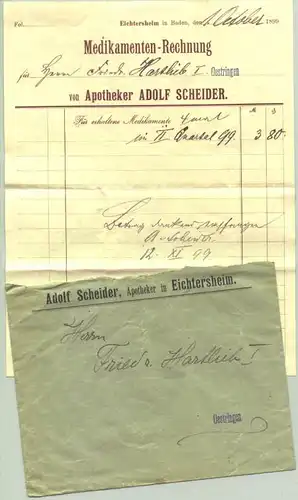 Fol.
Eichtersheim in Baden, den 1 October 1899
Medikamenten-Rechnung
für Herrn Friedr. Hartlieb I. Oestringen
von Apotheker ADOLF SCHEIDER.
Für erhaltene Medikamente
im II Quartal 99. 3 80
Betrag dankend empfangen
12. XI 99
Adolf Scheider, Apotheker in Eichtersheim.
Herrn
Friedr. Hartlieb I
Oestringen